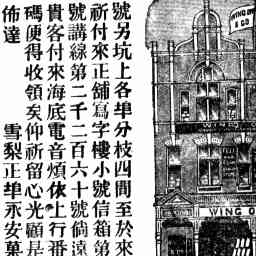 號另坑上各埠分枝四間至於來
祈付來正舖寫字樓小號信箱第
號講線第二千二百六十號倘遠
貴客付來海底電音煩依上行番
碼便得收領矣仰祈留心光顧是
佈達 雪梨正埠永安菓
WING ON
& CO
WING O